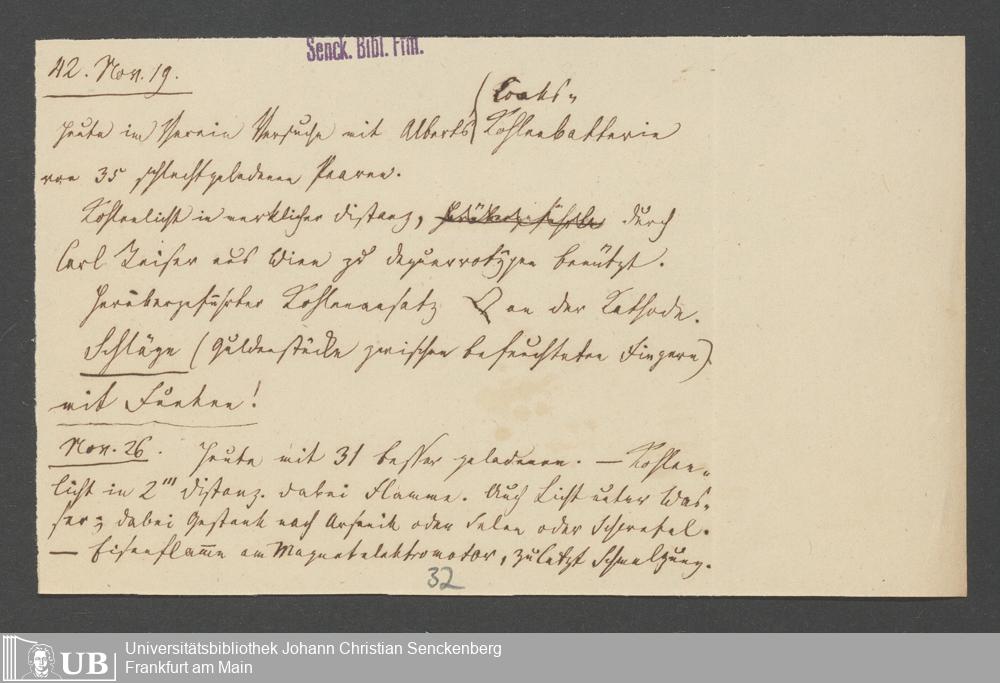 Senck. Bibl. Ffm.
42. Nov. 19.
Coaks-
Heute im Verein Versuche mit Alberts Kohlenbatterie
von 35 schlechtgeladenen Paaren.
Kohlenlicht in merklicher Distanz, durch
Carl Reiser aus Wien zu Daguerrotypen benützt.
Herübergeführter Kohlenansatz an der Kathode.
Schläge (Guldenstücke zwischen befeuchteten Fingern)
mit Funken!
Nov. 26. Heute mit 31 besser geladenen. — Kohlen-
licht in 2''' Distanz. Dabei Flamme. Auch Licht unter Was-
ser; dabei Gestank nach Arsenik oder Selen oder Schwefel.
— Eisenflamme am Magnetelektromotor, zuletzt Schmelzung.
32
UB
Universitätsbibliothek Johann Christian Senckenberg
Frankfurt am Main